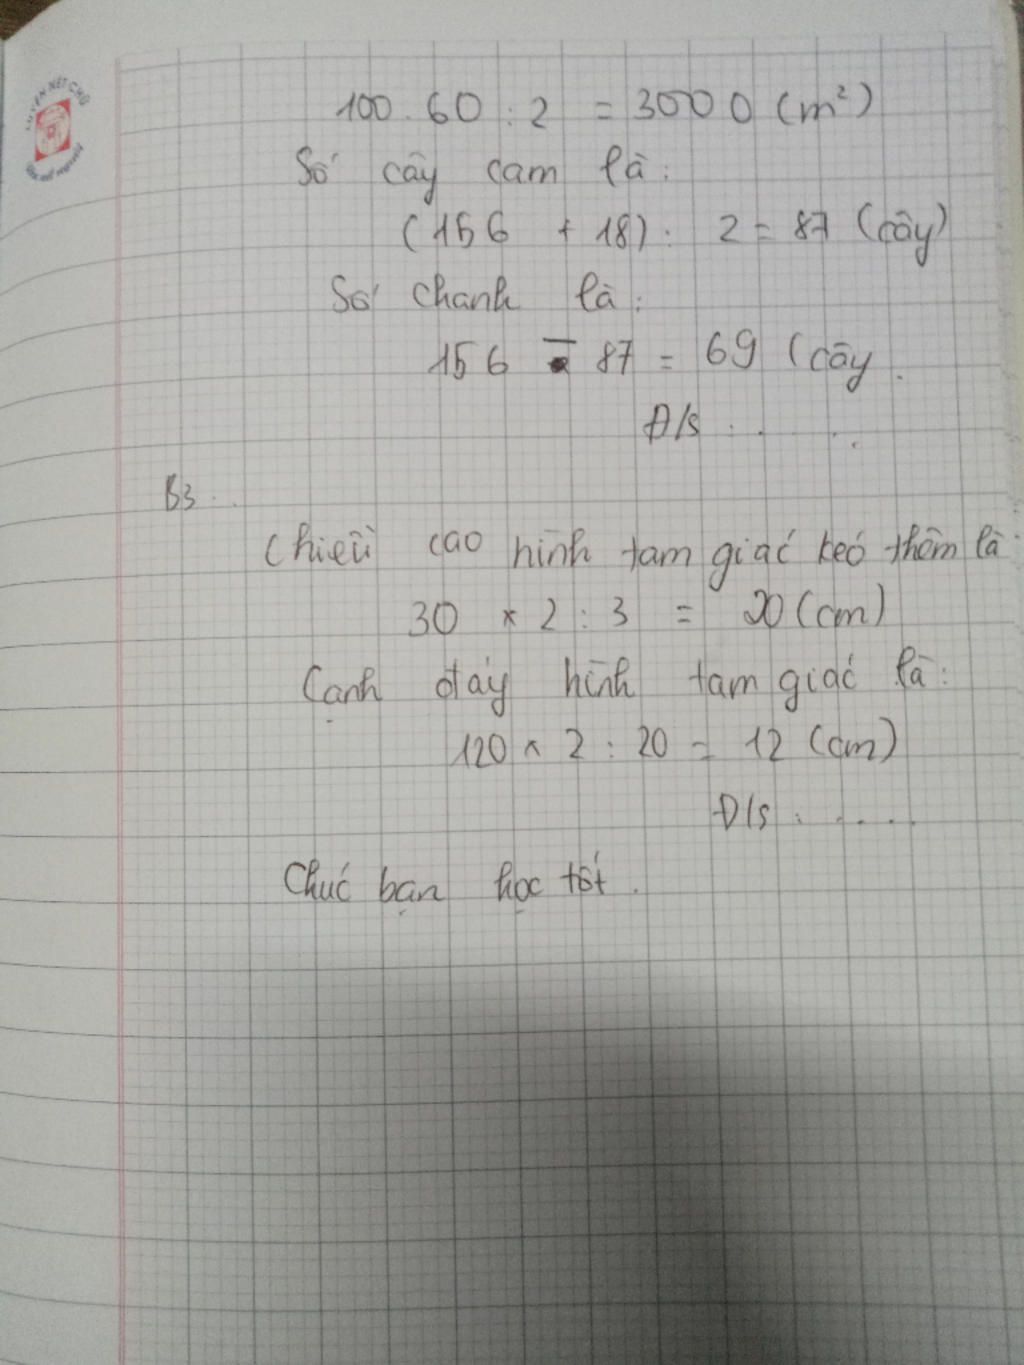 LUYỆN NÉT CHỮ
100 . 60 : 2 = 3000 (m²)
Số cây cam là:
(156 + 18) : 2 = 87 (cây)
Số chanh là:
156 - 87 = 69 (cây.
Đ/s : . . .
B3 . .
Chiều cao hình tam giác kéo thêm là:
30 x 2 : 3 = 20 (cm)
Cạnh đáy hình tam giác là:
120 x 2 : 20 = 12 (cm)
Đ/s : . . . .
Chúc bạn học tốt.